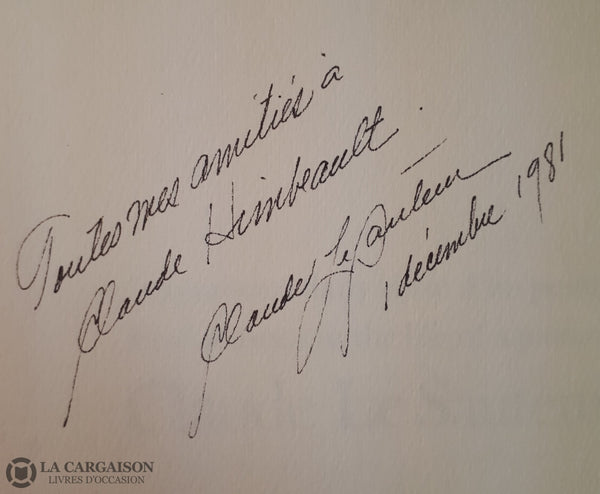 Toutes mes amitiés à
Claude Himbeault.
Claude Le Sauteur
1 décembre 1981
LA CARGAISON
LIVRES D'OCCASION